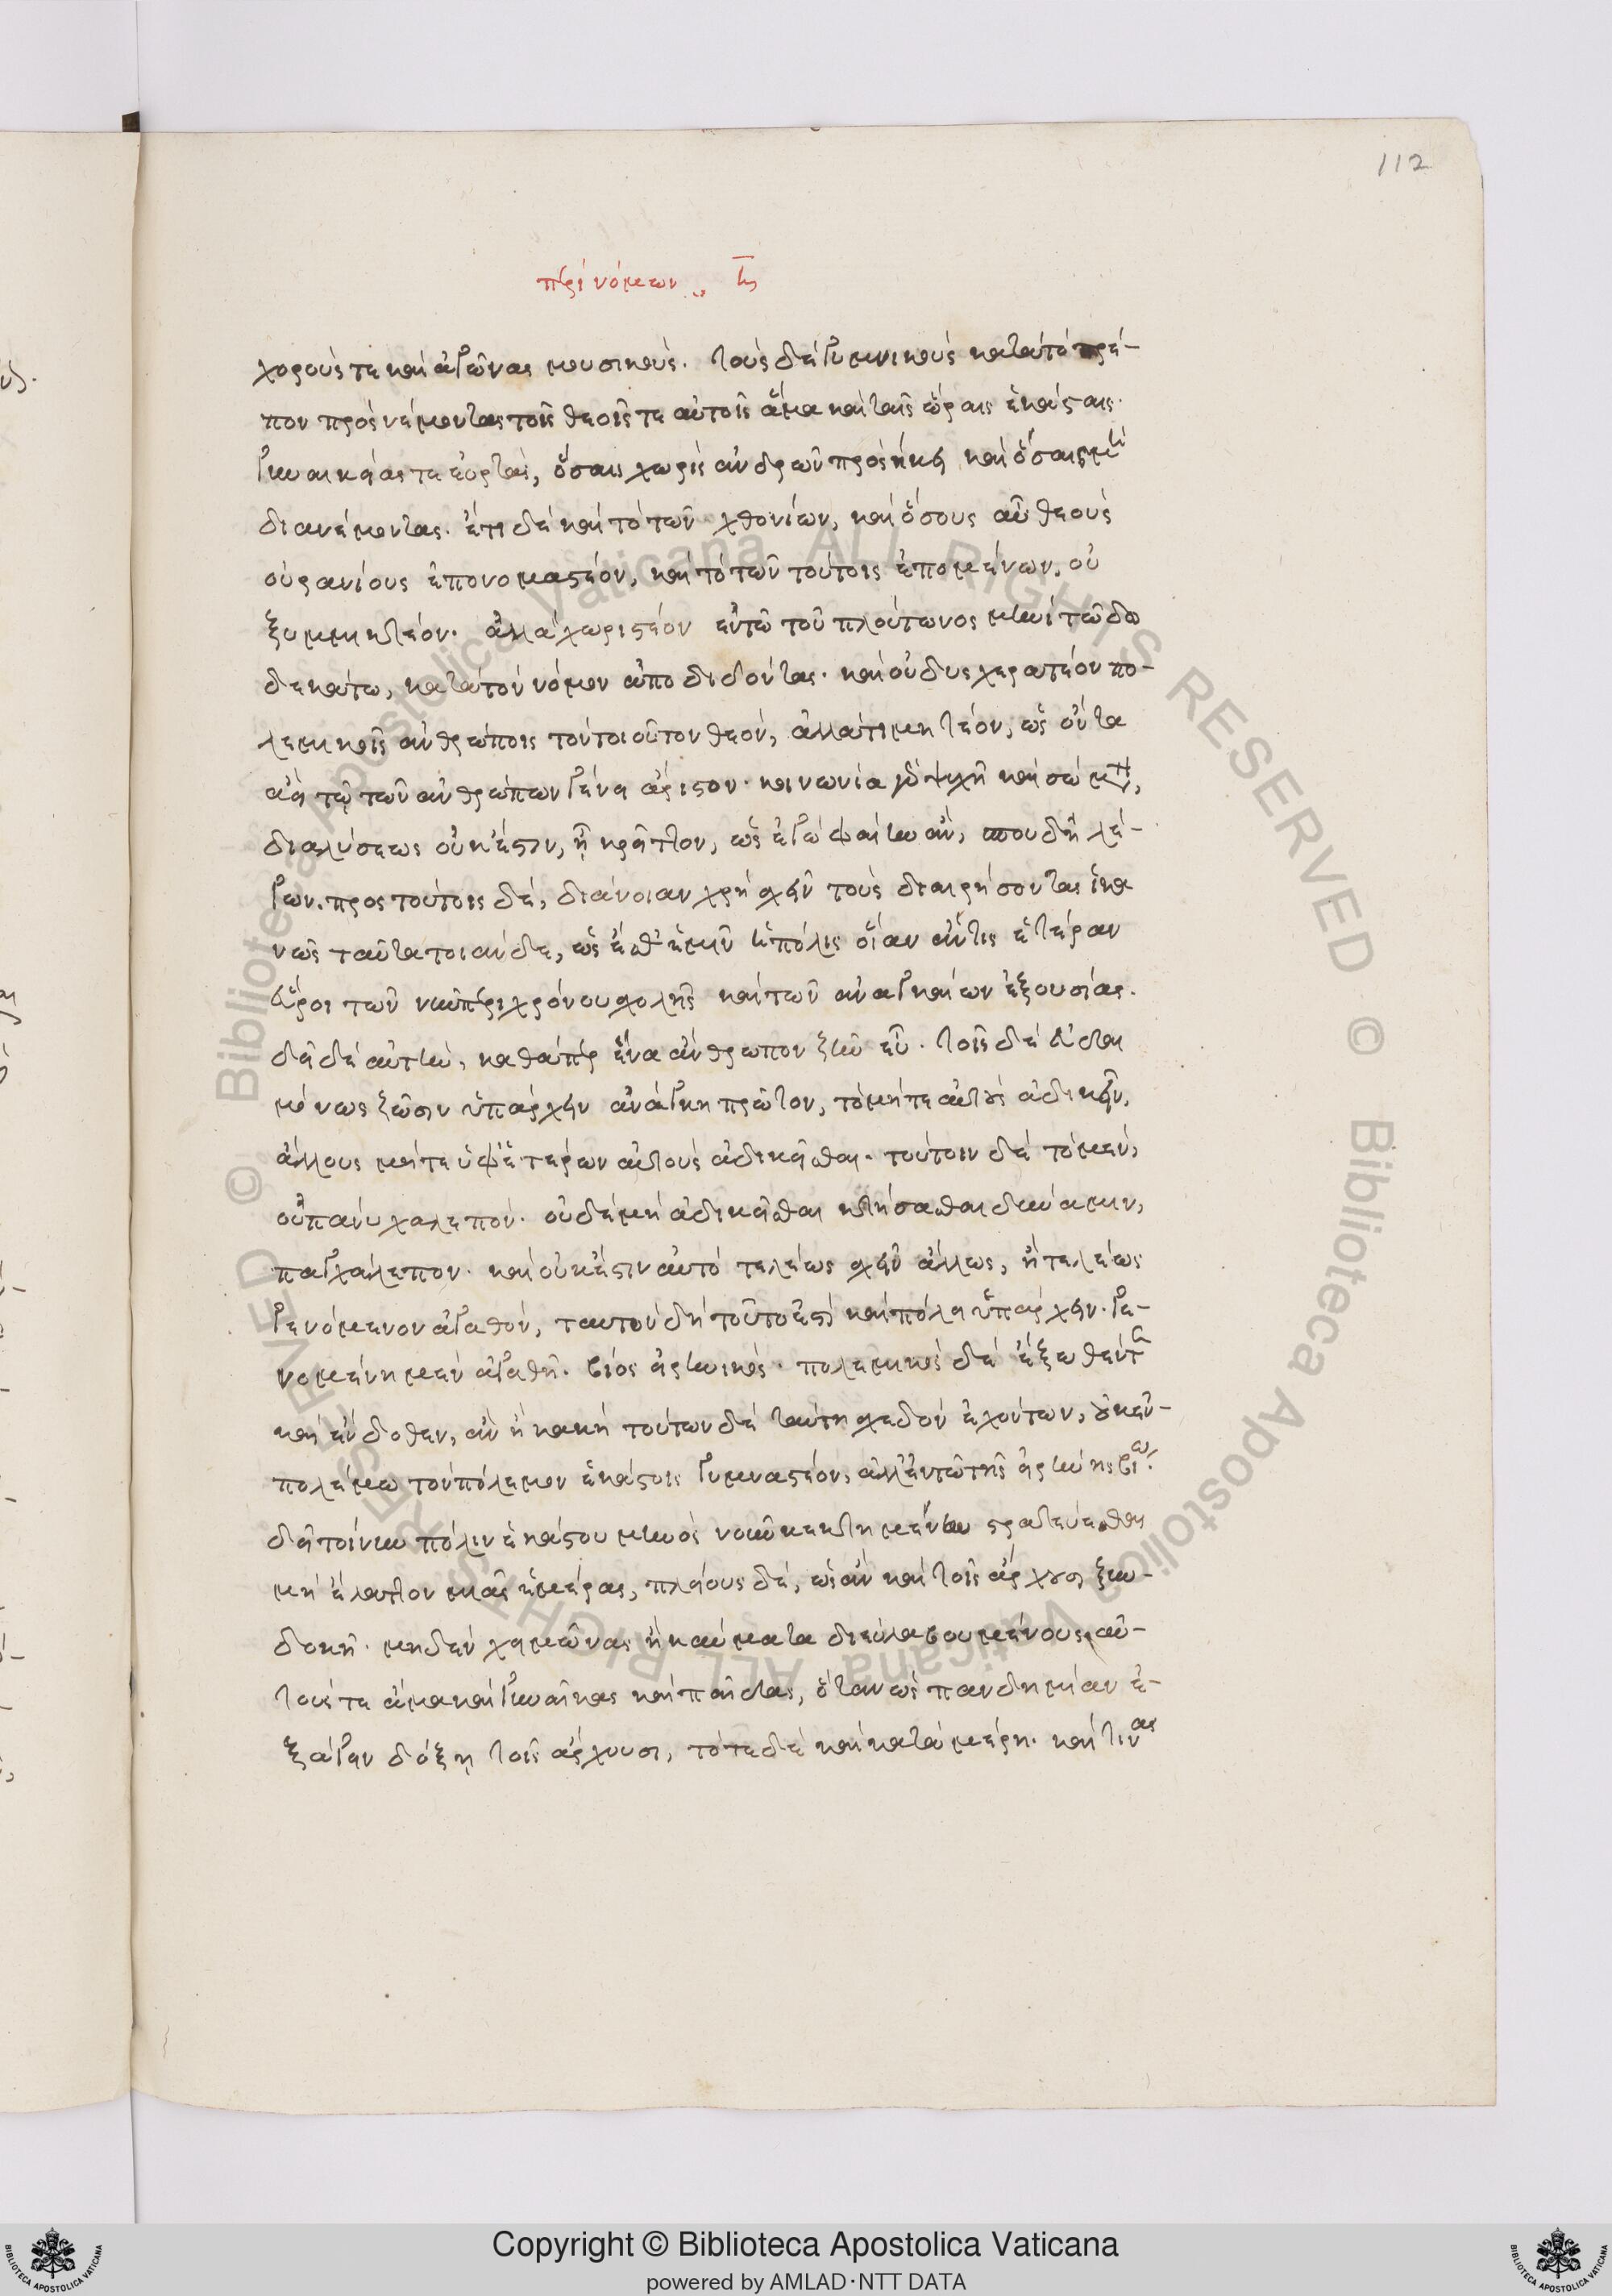 112
περὶ νόμων η
χορούς τε καὶ ἀγῶνας μουσικούς. τοὺς δὲ γυμνικοὺς κατὰ τὸ πρέ-
πον προσνέμοντας τοῖς θεοῖς τε αὐτοῖς ἅμα καὶ ταῖς ὥραις ἑκάσταις.
γυναικείας τε ἑορτάς, ὅσαις χωρὶς ἀνδρῶν προσήκει καὶ ὅσαις μὴ
διανέμοντας. ἔτι δὲ καὶ τὸ τῶν χθονίων, καὶ ὅσους αὖ θεοὺς
οὐρανίους ἐπονομαστέον, καὶ τὸ τῶν τούτοις ἑπομένων, οὐ
ξυμμικτέον. ἀλλὰ χωριστέον ἐν τῷ τοῦ πλούτωνος μηνὶ τῷ δω
δεκάτω, κατὰ τὸν νόμον ἀποδιδόντας. καὶ οὐ δυσχεραντέον πο-
λεμικοῖς ἀνθρώποις τὸν τοιοῦτον θεόν, ἀλλὰ τιμητέον, ὡς ὄντα
ἀεὶ τῷ τῶν ἀνθρώπων γένει ἄριστον. κοινωνία γὰρ ψυχῆ καὶ σώματι,
διαλύσεως οὐκ ἔστιν, ᾗ κρεῖττον, ὡς ἐγὼ φαίην ἄν, σπουδῆ λέ-
γων. προς τούτοις δέ, διάνοιαν χρὴ σχεῖν τοὺς διαιρήσοντας ἱκα
νῶς ταῦτα τοιάνδε, ὡς ἔσθ' ἡμῖν ἡ πόλις οἵαν οὔτις ἑτέραν
εὕροι τῶν νῦν περὶ χρόνου σχολῆς καὶ τῶν ἀναγκαίων ἐξουσίας.
δεῖ δὲ αὐτήν, καθάπερ ἕνα ἄνθρωπον ζῆν εὖ. τοῖς δὲ εὐδαι
μόνως ζῶσιν ὑπάρχειν ἀνάγκη πρῶτον, τὸ μήτε αὐτοὺς ἀδικεῖν,
ἄλλους μήτε ὑφ' ἑτέρων αὐτοὺς ἀδικεῖσθαι. τούτοιν δὲ τὸ μέν,
οὐ πάνυ χαλεπόν. οὐ δὲ μὴ ἀδικεῖσθαι κτήσασθαι δύναμιν,
παγχάλεπον. καὶ οὐκ ἔστιν αὐτὸ τελέως σχεῖν ἄλλως, ἢ τελέως
γενόμενον ἀγαθόν, ταυτὸν δὴ τοῦτο ἐστὶ καὶ πόλει ὑπάρχειν. γε-
νομένη μὲν ἀγαθῆ. βίος εἰρηνικός. πολεμικὸς δὲ ἔξωθέν τε
καὶ ἔνδοθεν, ἂν ἢ κακή τούτων δὲ ταύτη σχεδὸν ἐχόντων, οὐκ ἐν-
πολέμω τὸν πόλεμον ἑκάστοις γυμναστέον, ἀλλ' ἐν τῷ τῆς εἰρήνης βίω.
δεῖ τοίνυν πόλιν ἑκάστου μηνὸς νοῦν κεκτημένην στρατεύεσθαι
μὴ ἔλαττον μιᾶς ἡμέρας, πλείους δέ, ὡς ἂν καὶ τοῖς ἄρχουσι ξυν-
δοκῆ. μηδὲν χειμῶνας ἢ καύματα διευλαβουμένους, αὐ-
τούς τε ἅμα καὶ γυναῖκας καὶ παῖδας, ὅταν ὡς πανδημίαν ἐ-
ξάγειν δόξῃ τοῖς ἄρχουσι, τότε δὲ καὶ κατὰ μέρη. καὶ τινας
Copyright © Biblioteca Apostolica Vaticana
powered by AMLAD·NTT DATA